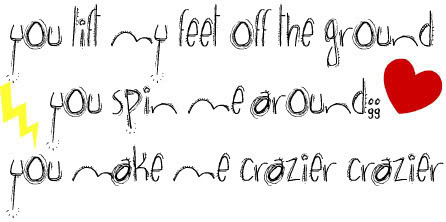 you lift my feet off the ground
you spin me around;
you make me crazier crazier